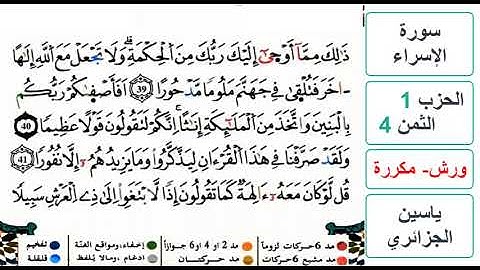 سورة
الإسراء
الحزب 1
الثمن 4
ورش- مكررة
ياسين
الجزائري
ذَٰلِكَ مِمَّا أَوْحَىٰ إِلَيْكَ رَبُّكَ مِنَ ٱلْحِكْمَةِ وَلَا تَجْعَلْ مَعَ ٱللَّهِ إِلَٰهًا
ـاخَرَ فَتُلْقَىٰ فِے جَهَنَّمَ مَلُومًا مَّدْحُورًا 39 أَفَأَصْفَىٰكُمْ رَبُّكُم
بِالْبَنِينَ وَٱتَّخَذَ مِنَ ٱلْمَلَٰٓئِكَةِ إِنَٰثًا إِنَّكُمْ لَتَقُولُونَ قَوْلًا عَظِيمًا 40
وَلَقَدْ صَرَّفْنَا فِے هَٰذَا ٱلْقُرْءَانِ لِيَذَّكَّرُواْ وَمَا يَزِيدُهُمْ إِلَّا نُفُورًا 41
قُل لَّوْ كَانَ مَعَهُۥ ءَالِهَةٌ كَمَا تَقُولُونَ إِذًا لَّابْتَغَوِاْ اِلَىٰ ذِے ٱلْعَرْشِ سَبِيلًا
مد 6 حركات لزوماً مد 2 أو 4 أو 6 جوازاً إخفاء، ومواقع الغنّة تفخيم
مد مشبع 6 حركات مد حركتان إدغام، ومالا يُلفظ قلقلة